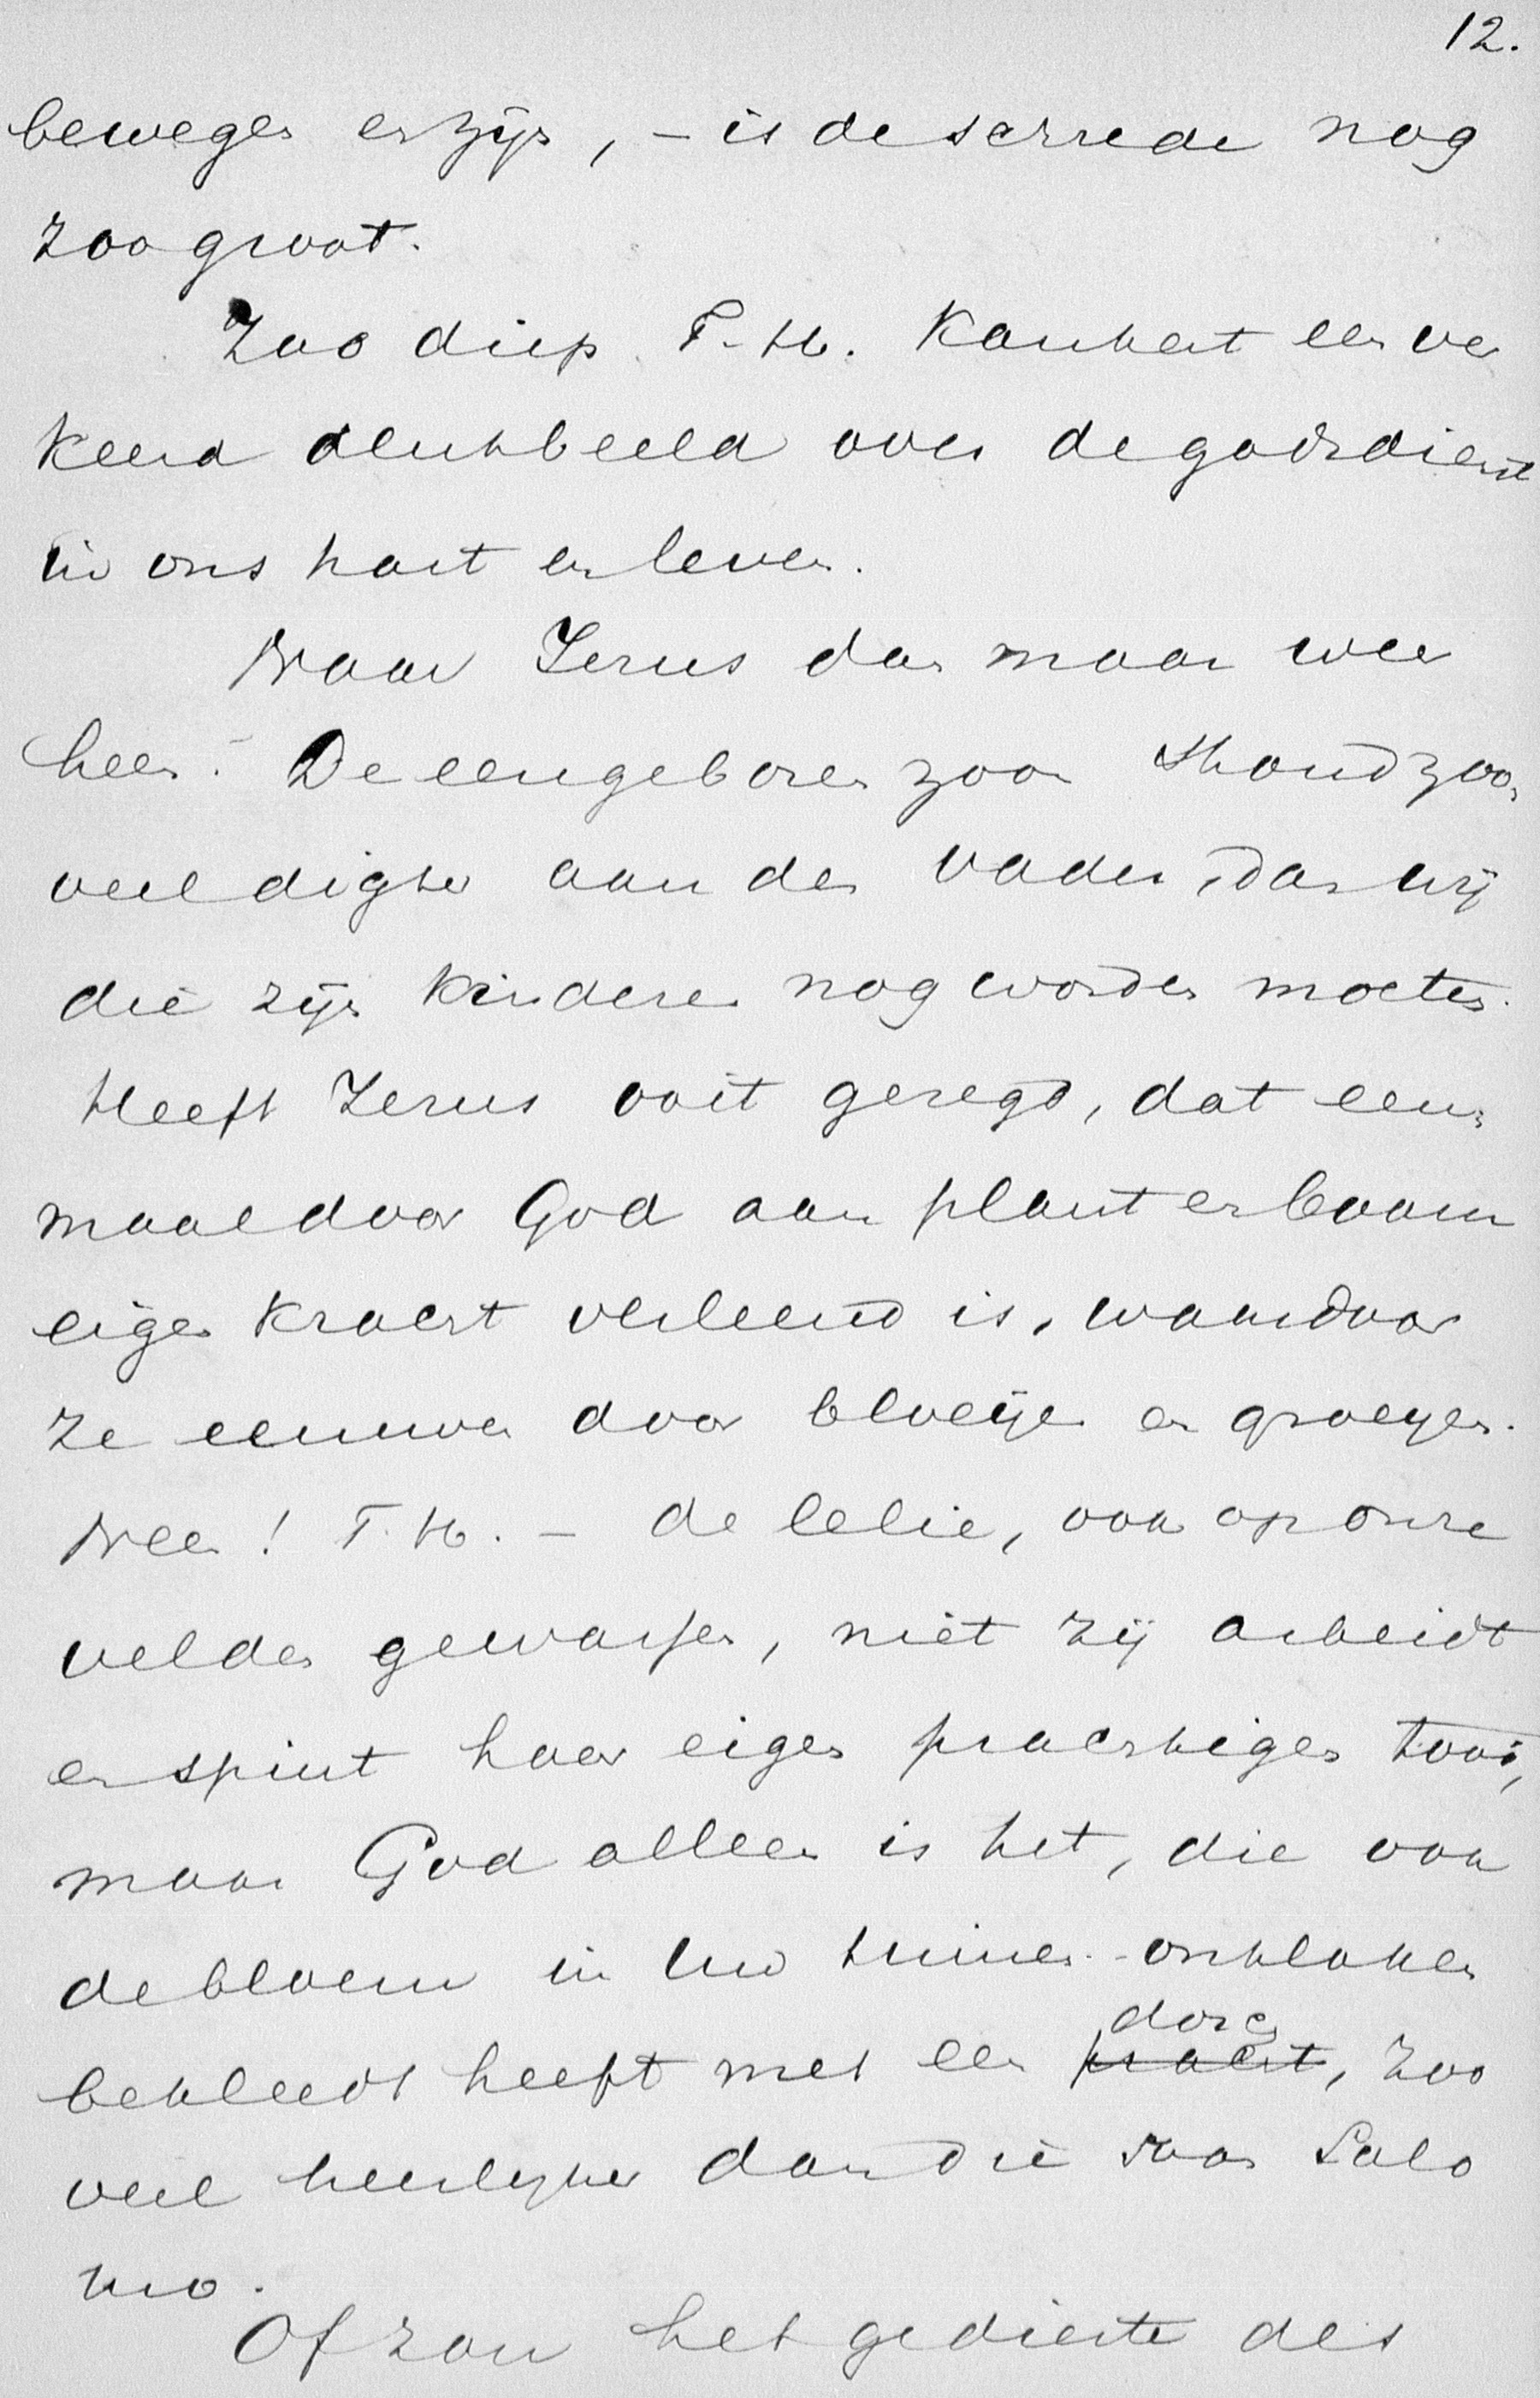 12.
bewegen en zijn, – is de schrede nog
zoo groot.
Zoo diep T. H. kankert een ver
keerd denkbeeld over de godsdienst
in ons hart en leven.
Naar Jezus dan maar weer
heen. De eengeboren zoon stond zoo
veel digter aan den vader, dan wij
die zijn kinderen nog worden moeten.
Heeft Jezus ooit gezegd, dat een-
maal door God aan plant en boom
eigen kracht verleend is, waardoor
ze eeuwen door bloeijen en groeijen.
Neen! T. H. – de lelie, ook op onze
velden gewassen, niet zij arbeidt
en spint haar eigen prachtigen tooi,
maar God alleen is het, die ook
de bloem in Uw tuinen ontloken
bekleedt heeft met een pracht, zoo
dos
veel heerlijker dan die van Salo
mo.
Of zou het gedierte des